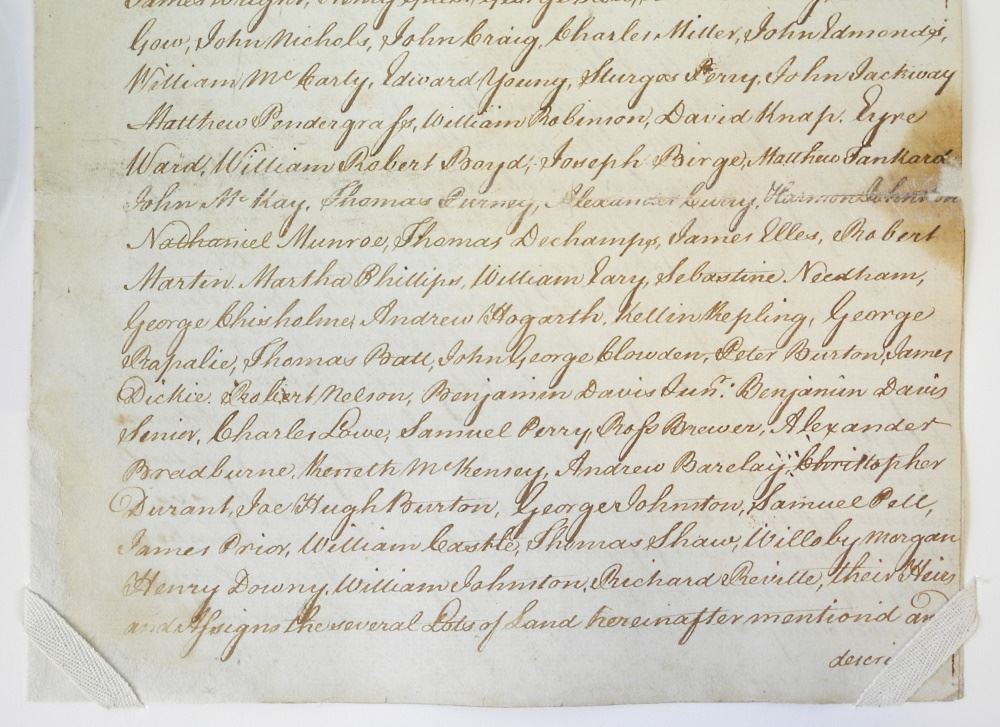 Gow, John Nichols, John Craig, Charles Miller, John Edmonds,
William McCarty, Edward Young, Sturgos Perry, John Jackway
Matthew Pendergrass, William Robinson, David Knap. Eyre
Ward, William Robert Boyd, Joseph Birge, Matthew Tankard
John McKay, Thomas Purney, Alexander Curry, Harmon Johnston
Nathaniel Munroe, Thomas Dechamps, James Elles, Robert
Martin. Martha Phillips, William Tary, Sebastine Needham,
George Chisholme, Andrew Hogarth, Kellin Kepling, George
Rapalie, Thomas Ball, John George Clowden, Peter Burton, James
Dickie. Robert Nelson, Benjamin Davis Junr. Benjamin Davis
Senior, Charles Lowe, Samuel Perry, Ross Brewer, Alexander
Bradburne, Kerreth McKensey, Andrew Barclay, Christopher
Durant, Joe Hugh Burton, George Johnston, Samuel Pell,
James Prior, William Castle, Thomas Shaw, Willoby Morgan
Henry Downy, William Johnston, Richard Reville, their Heirs
and Assigns the several Lots of Land hereinafter mentiond an
descri